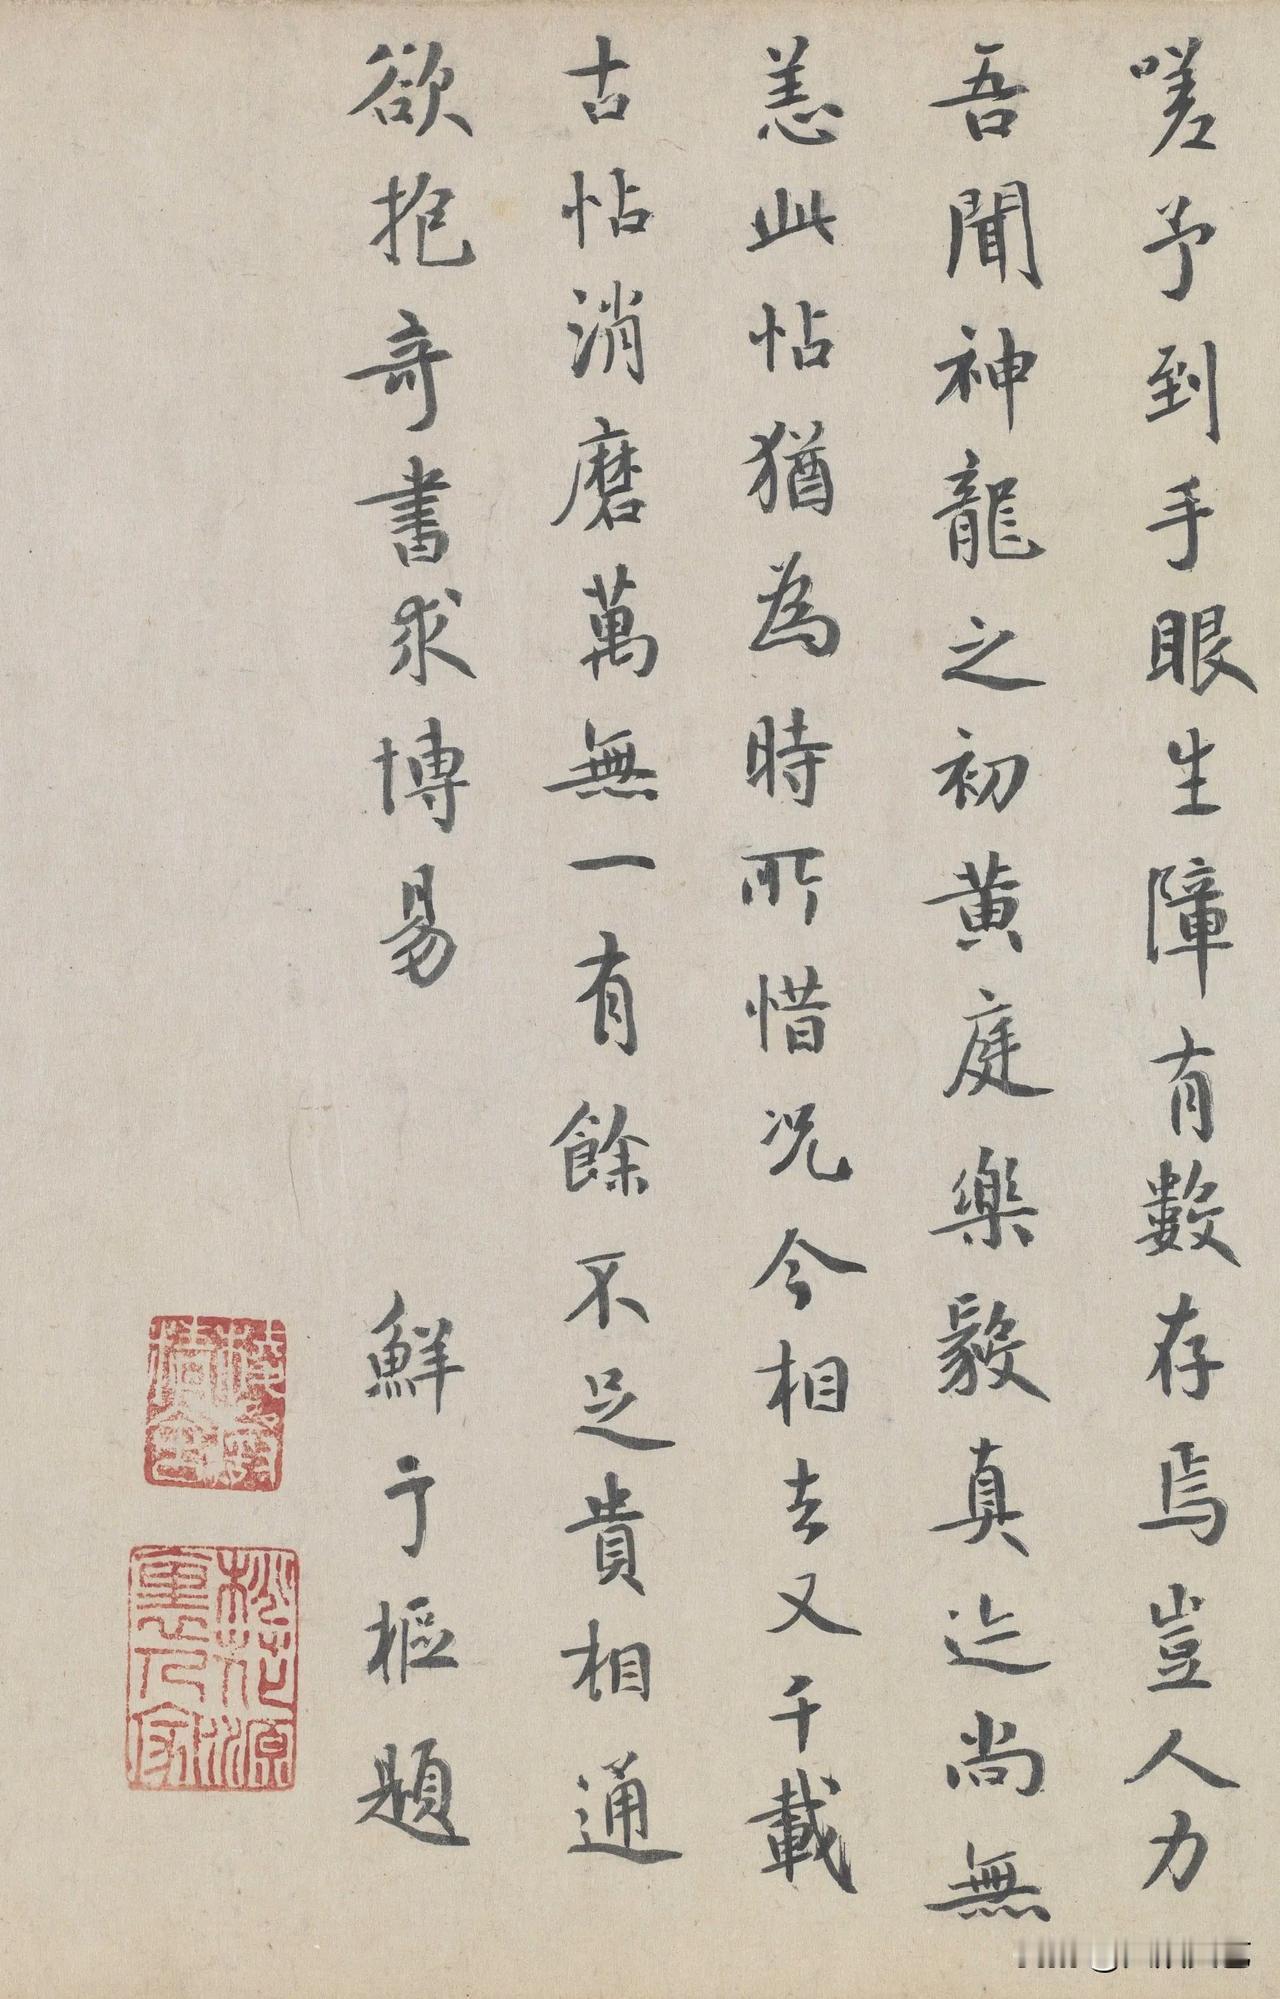 嗟予到手眼生障有數存焉豈人力
吾聞神龍之初黄庭樂毅真迹尚無
恙此帖猶為時所惜况今相去又千載
古帖消磨萬無一有餘不足貴相通
欲抱奇書求博易 鮮于樞題
桃花源裏人家